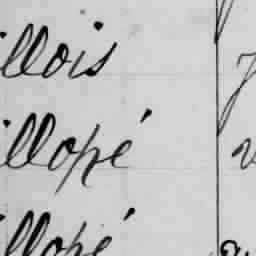 illois
illopé
illopé